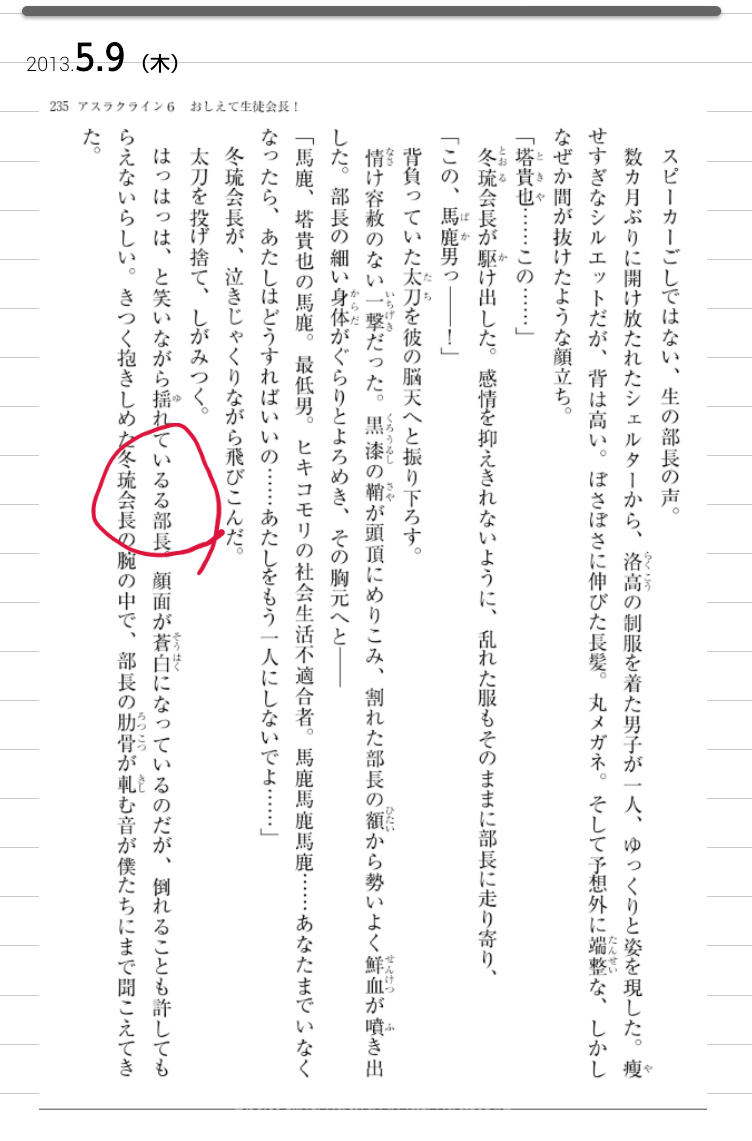 2013.5.9（木）
235 アスラクライン６ おしえて生徒会長！
スピーカーごしではない、生の部長の声。
数カ月ぶりに開け放たれたシェルターから、洛高の制服を着た男子が一人、ゆっくりと姿を現した。痩
せすぎなシルエットだが、背は高い。ぼさぼさに伸びた長髪。丸メガネ。そして予想外に端整な、しかし
なぜか間が抜けたような顔立ち。
「塔貴也……この……」
冬琉会長が駆け出した。感情を抑えきれないように、乱れた服もそのままに部長に走り寄り、
「この、馬鹿男っ――！」
背負っていた太刀を彼の脳天へと振り下ろす。
情け容赦のない一撃だった。黒漆の鞘が頭頂にめりこみ、割れた部長の額から勢いよく鮮血が噴き出
した。部長の細い身体がぐらりとよろめき、その胸元へと――
「馬鹿、塔貴也の馬鹿。最低男。ヒキコモリの社会生活不適合者。馬鹿馬鹿馬鹿……あなたまでいなく
なったら、あたしはどうすればいいの……あたしをもう一人にしないでよ……」
冬琉会長が、泣きじゃくりながら飛びこんだ。
太刀を投げ捨て、しがみつく。
はっはっは、と笑いながら揺れているる部長、顔面が蒼白になっているのだが、倒れることも許しても
らえないらしい。きつく抱きしめた冬琉会長の腕の中で、部長の肋骨が軋む音が僕たちにまで聞こえてき
た。